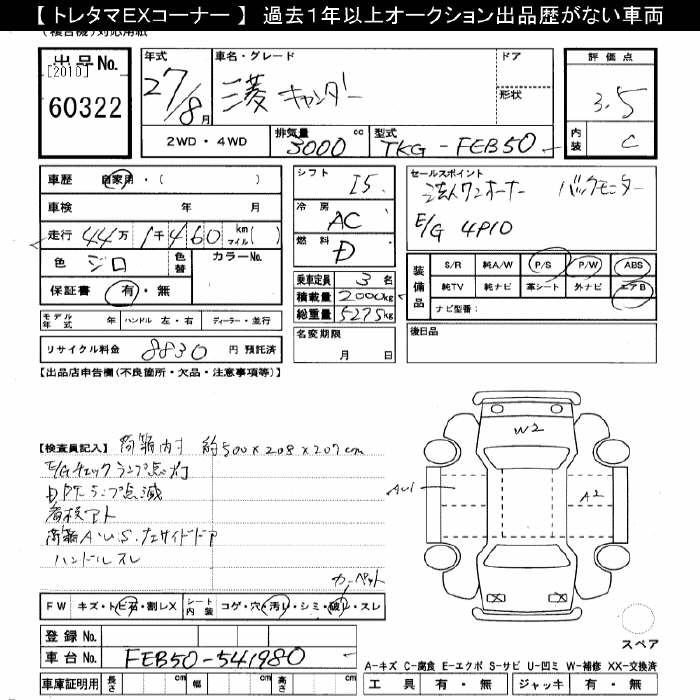 【 トレタマEXコーナー 】 過去1年以上オークション出品歴がない車両
(複合機)対応用紙
出品No.
[2010]
60322
年式
27/8月
車名・グレード
三菱 キャンター
ドア
形状
評価点
3.5
内装
C
2WD・4WD
排気量 3000 cc
型式 TKG-FEB50
車歴 自家用・( )
車検 年 月
走行 44万1千460 km マイル( )
色 シロ 色替 カラーNo.
保証書 有・無
モデル年式 年 ハンドル 左・右 ディーラー・並行
リサイクル料金 8830 円 預託済
シフト I5
冷房 AC
燃料 D
乗車定員 3名
積載量 2000kg
総重量 5275kg
名変期限
月 日
セールスポイント
法人ワンオーナー バックモニター
E/G 4P10
装備品
S/R 純A/W P/S P/W ABS
純TV 純ナビ 革シート 外ナビ エアB
ナビ型番:
後日品
【出品店申告欄(不良箇所・欠品・注意事項等)】
【検査員記入】 荷箱内寸 約500×208×207cm
E/Gチェックランプ点灯
DPFランプ点滅
看板アト
荷箱A.U.S.
ハンドルスレ
カーペット
FW キズ・トビ石・割レX シート内装 コゲ・穴・汚レ・シミ・破レ・スレ
登録No.
車台No. FEB50-541980
車庫証明用 長さ cm 幅 cm 高さ cm
W2
AU1
A2
スペア
A-キズ C-腐食 E-エクボ S-サビ U-凹ミ W-補修 XX-交換済
工具 有・無 ジャッキ 有・無